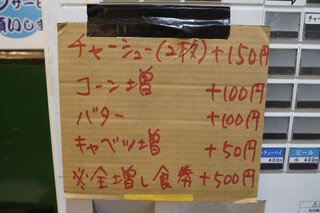 ンサービ
願いします
チャーシュー(2枚)+150円
コーン増 +100円
バター +100円
キャベツ増 +50円
※全増し食券+500円
ビール
小 400円